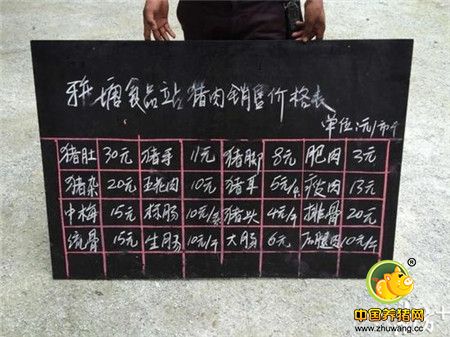 塘食品站猪肉销售价格表
单位:元/市斤
猪肚 30元 猪手 11元 猪脚 8元 肥肉 3元
猪杂 20元 五花肉 10元 猪耳 5元/ 瘦肉 13元
中梅 15元 粉肠 10元/ 猪头 4元/斤 排骨 20元
15元 生肠 10元/斤 大肠 6元 后腿肉 10元/斤
中国养猪网
www.zhuwang.cc